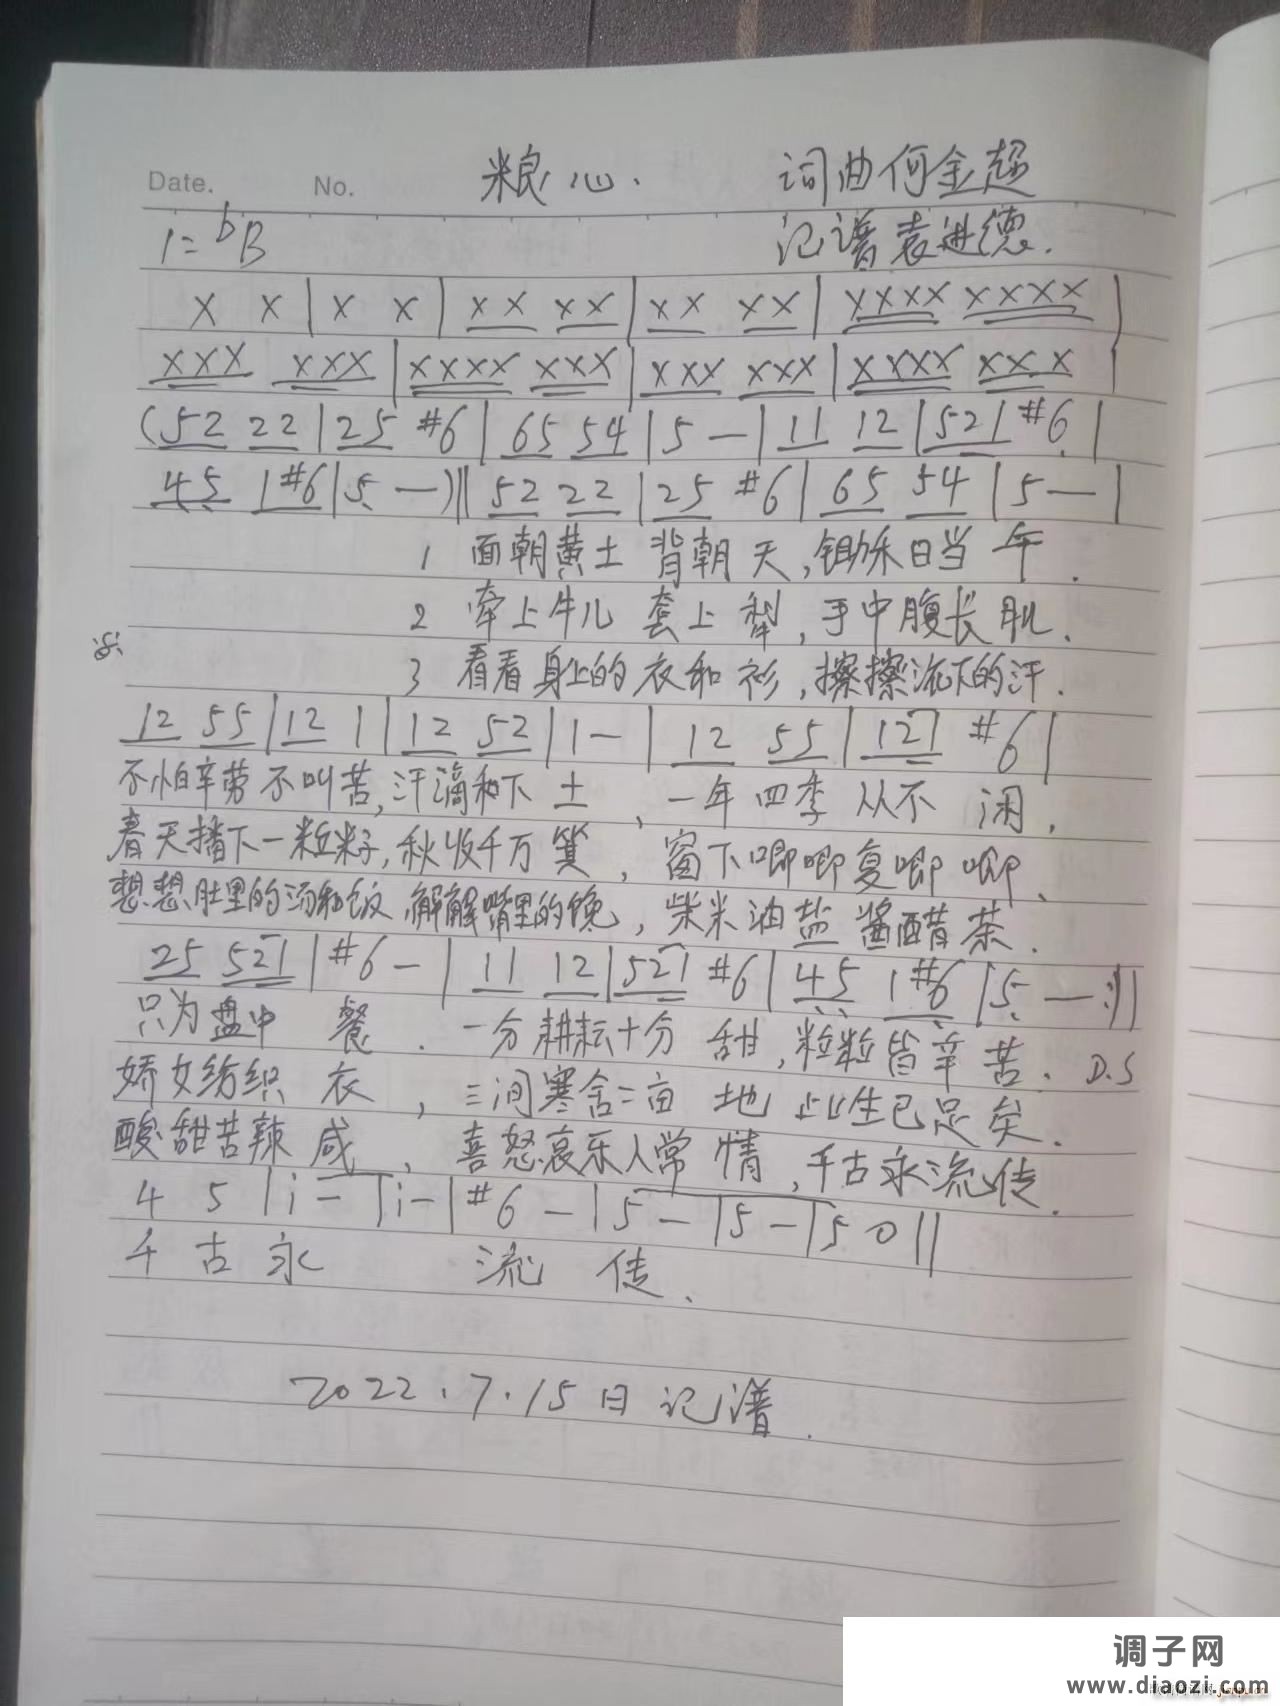 Date. No. 粮心. 词曲何金超
1=bB 记谱袁进德.
X X | X X | XX XX | XX XX | XXXX XXXX |
XXX XXX | XXXX XXX | XXX XXX | XXXX XXX |
(52 22 | 25 #6 | 65 54 | 5 — | 11 12 | 521 #6 |
45 1#6 | 5 —)‖ 52 22 | 25 #6 | 65 54 | 5 — |
1 面朝黄土 背朝天,锄禾日当午.
2 牵上牛儿 套上犁,手中腹长肌.
3 看看身上的衣和衫,擦擦流下的汗.
12 55 | 12 1 | 12 52 | 1 — | 12 55 | 121 #6 |
不怕辛劳不叫苦,汗滴和下土,一年四季从不闲.
春天播下一粒籽,秋收千万箕,窗下唧唧复唧唧.
想想肚里的汤和饭,解解嘴里的馋,柴米油盐酱醋茶.
25 521 | #6 — | 11 12 | 521 #6 | 45 1#6 | 5 — :‖
只为盘中餐.一分耕耘十分甜,粒粒皆辛苦. D.S
娇女纺织衣,三间寒舍二亩地 此生已足矣.
酸甜苦辣咸,喜怒哀乐人常情,千古永流传.
4 5 | i — | i — | #6 — | 5 — | 5 — | 5 0 ‖
千古永 流传.
2022.7.15日记谱.
调子网
www.diaozi.com